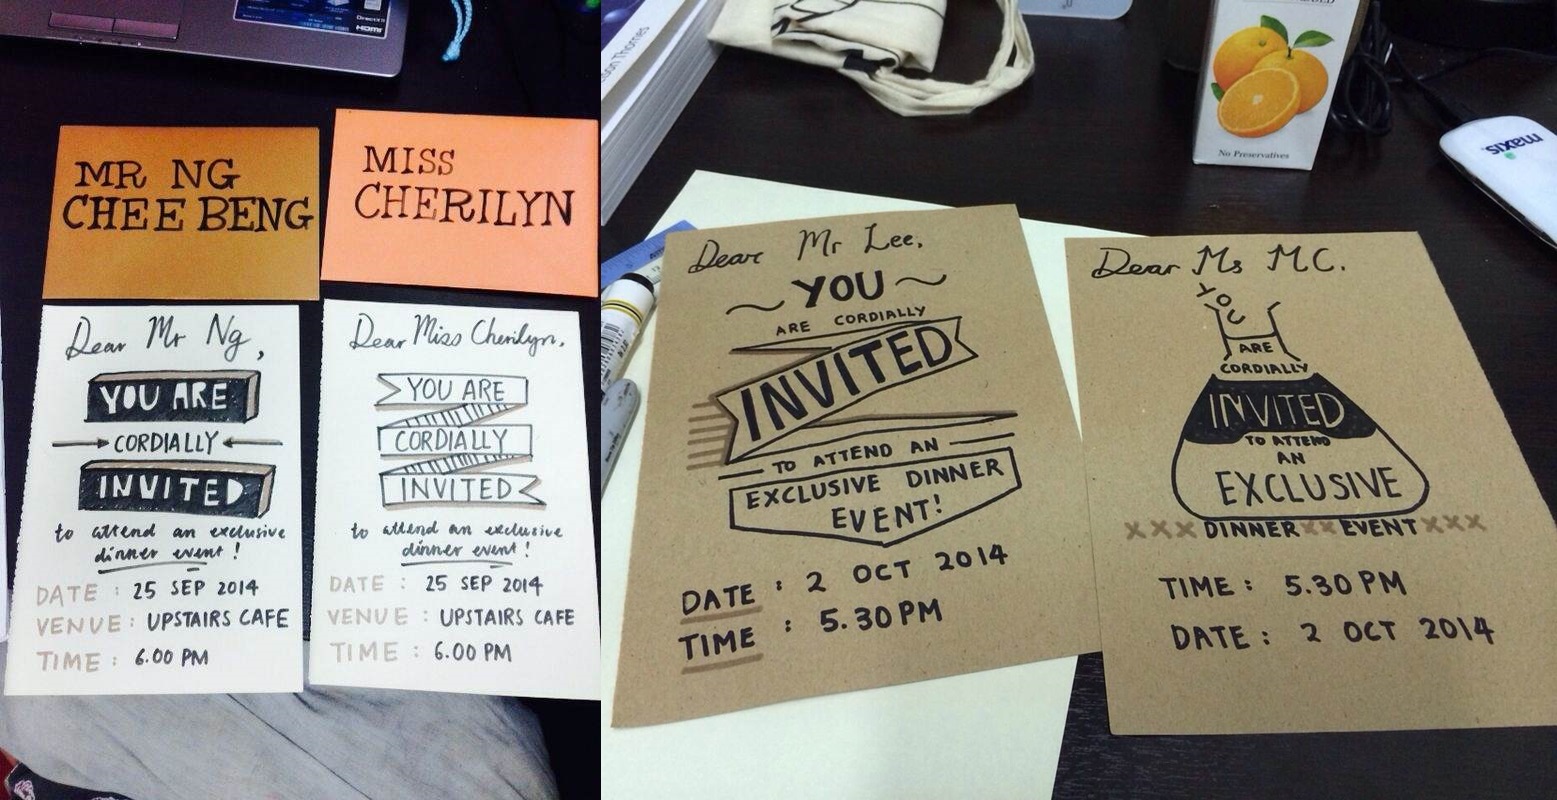 DirectX 11
HDMI
MR NG
CHEE BENG
MISS
CHERILYN
Dear Mr Ng,
YOU ARE
CORDIALLY
INVITED
to attend an exclusive
dinner event!
DATE : 25 SEP 2014
VENUE : UPSTAIRS CAFE
TIME : 6.00 PM
Dear Miss Cherilyn,
YOU ARE
CORDIALLY
INVITED
to attend an exclusive
dinner event!
DATE : 25 SEP 2014
VENUE : UPSTAIRS CAFE
TIME : 6.00 PM
Thornes
No Preservatives
maxis
Dear Mr Lee,
YOU
ARE CORDIALLY
INVITED
TO ATTEND AN
EXCLUSIVE DINNER
EVENT!
DATE : 2 OCT 2014
TIME : 5.30 PM
Dear Ms MC.
YOU
ARE
CORDIALLY
INVITED
TO ATTEND
AN
EXCLUSIVE
XXX DINNER XX EVENT XXX
TIME : 5.30 PM
DATE : 2 OCT 2014